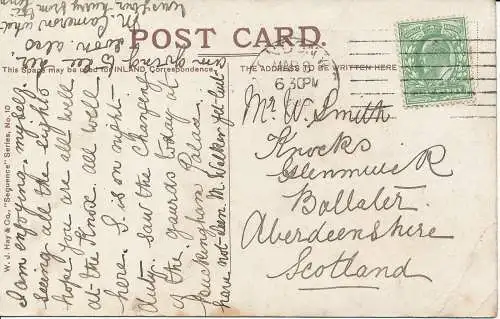 POST CARD.
This Space may be used for INLAND Correspondence.
TO BE WRITTEN HERE
6.30PM
W. J. Hay & Co., "Sequence" Series, No. 10
I am enjoying myself
seeing all the sights
hope you are all well
at the Knox all well
here. S. is on night
duty saw the changeing
of the gaurds today at
Buckingham Palace.
have not seen M. Walker yet but
am going to see
soon also
M. Cameron
Mr W. Smith
Knocks
Glenmuick
Ballater
Aberdeenshire
Scotland